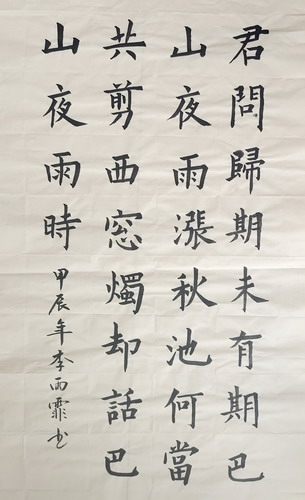 君問歸期未有期巴
山夜雨漲秋池何當
共剪西窓燭却話巴
山夜雨時
甲辰年李雨霏书